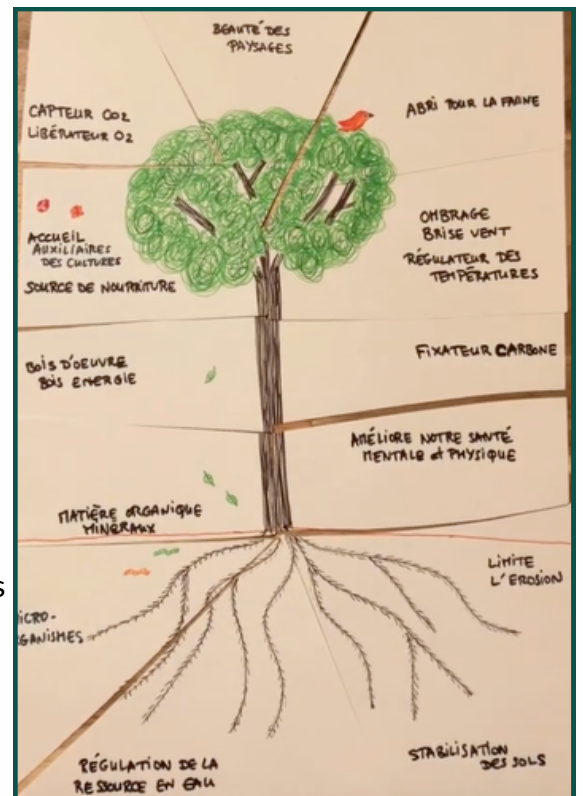 BEAUTÉ DES
PAYSAGES
CAPTEUR CO2
LIBÉRATEUR O2
ABRI POUR LA FAUNE
ACCUEIL
AUXILIAIRES
DES CULTURES
SOURCE DE NOURRITURE
OMBRAGE
BRISE VENT
RÉGULATEUR DES
TEMPÉRATURES
BOIS D'OEUVRE
BOIS ENERGIE
FIXATEUR CARBONE
AMÉLIORE NOTRE SANTÉ
MENTALE et PHYSIQUE
MATIÈRE ORGANIQUE
MINÉRAUX
LIMITE
L'EROSION
s
MICRO-
ORGANISMES
RÉGULATION DE LA
RESSOURCE EN EAU
STABILISATION
DES SOLS